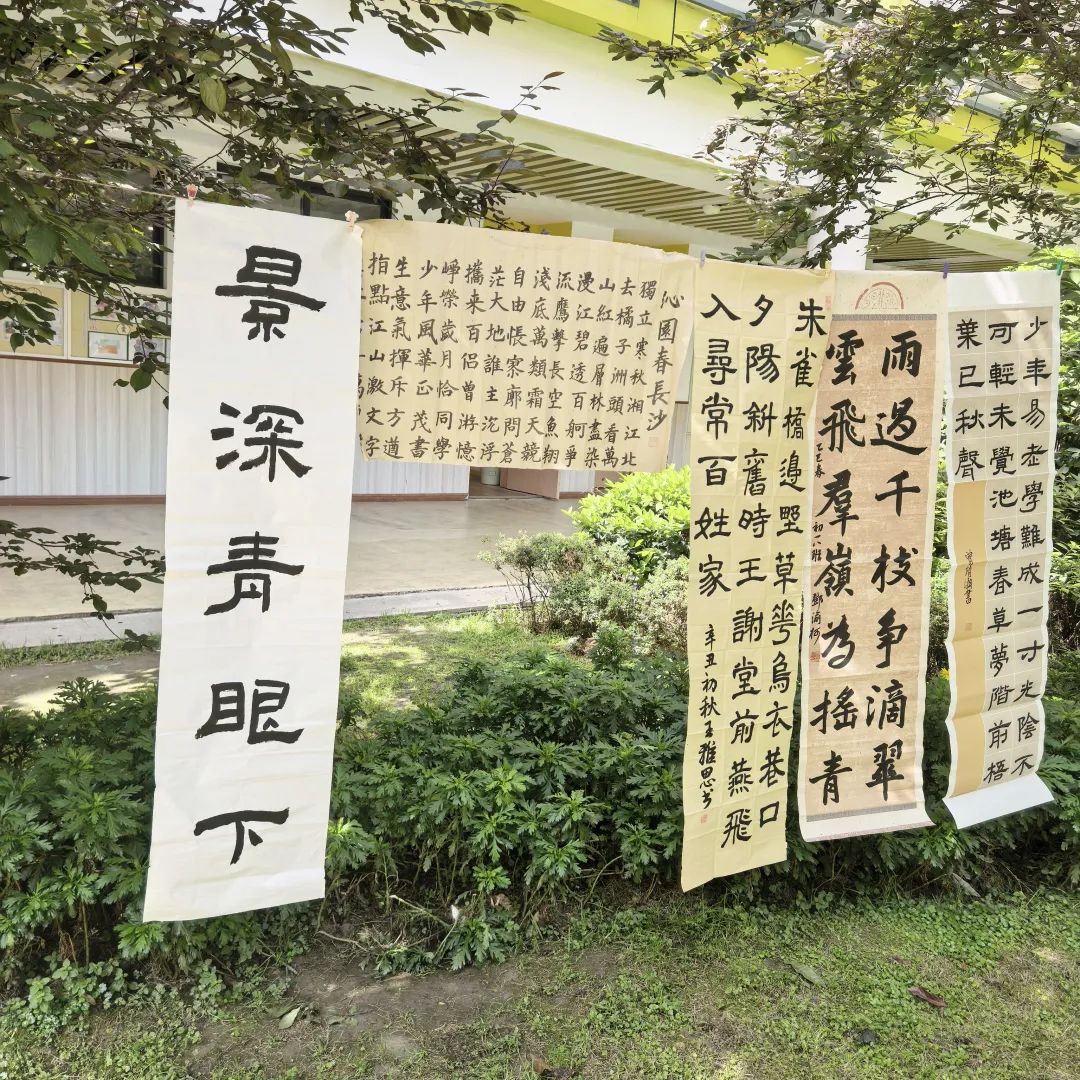 景深青眼下
沁園春長沙
獨立寒秋湘江北
去橘子洲頭看萬
山紅遍層林盡染
漫江碧透百舸爭
流鷹擊長空魚翔
淺底萬類霜天競
自由悵寥廓問蒼
茫大地誰主沉浮
攜來百侶曾游憶
崢嶸歲月恰同學
少年風華正茂書
生意氣揮斥方遒
指點江山激文字
朱雀橋邊野草花烏衣巷口
夕陽斜舊時王謝堂前燕飛
入尋常百姓家
辛丑初秋王雅思书
雨過千枝争滴翠
雲飛羣嶺為搖青
乙巳春
少年易老學難成一寸光陰不
可輕未覺池塘春草夢階前梧
葉已秋聲